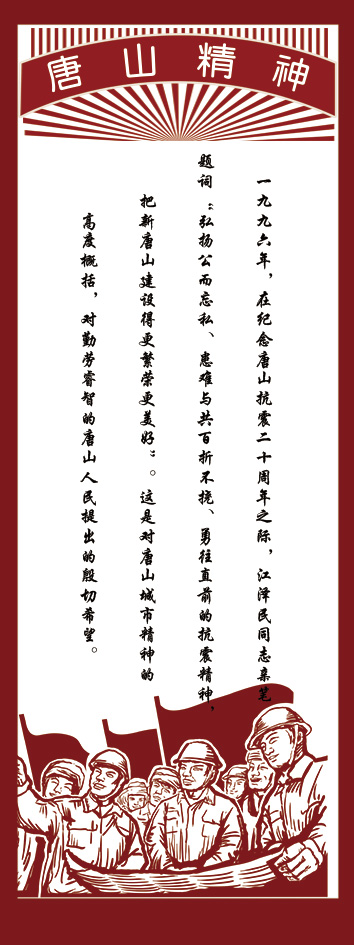 唐山精神
一九九六年，在纪念唐山抗震二十周年之际，江泽民同志亲笔
题词：“弘扬公而忘私、患难与共百折不挠、勇往直前的抗震精神，
把新唐山建设得更繁荣更美好”。这是对唐山城市精神的
高度概括，对勤劳睿智的唐山人民提出的殷切希望。